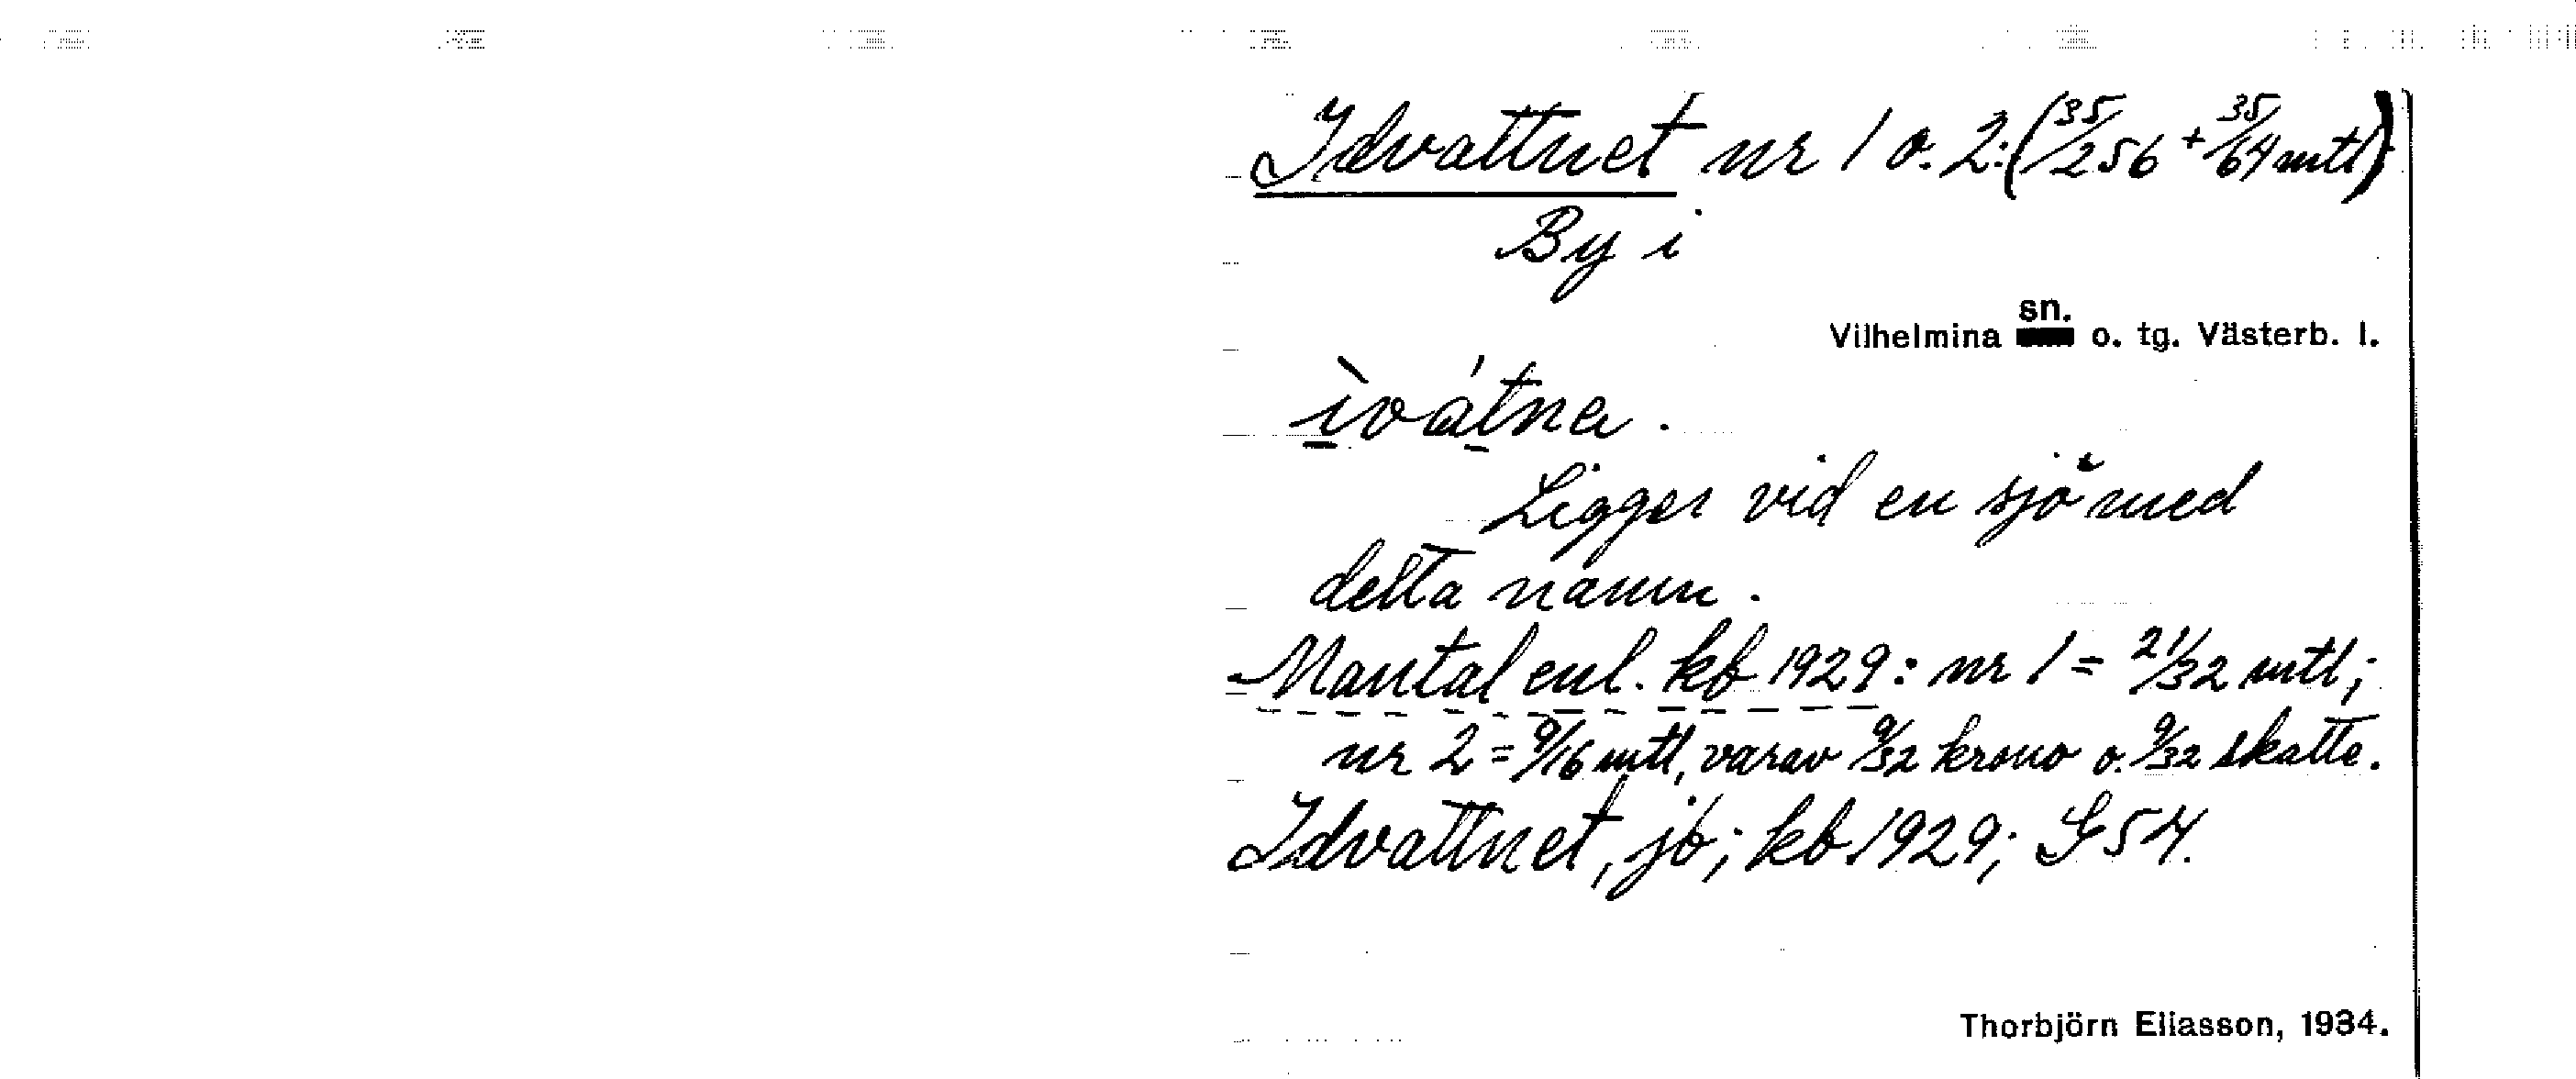 Idvattnet nr 1 o. 2: (35/256 + 35/64 mtl)
By i
Vilhelmina sn. o. tg. Västerb. l.
ìvátnɐ.
Ligger vid en sjö med
detta namn.
Mantal enl. kb 1929: nr 1 = 21/32 mtl;
nr 2 = 9/16 mtl, varav 9/32 krono o. 9/32 skatte.
Idvattnet, jb; kb 1929; G 54.
Thorbjörn Eliasson, 1934.